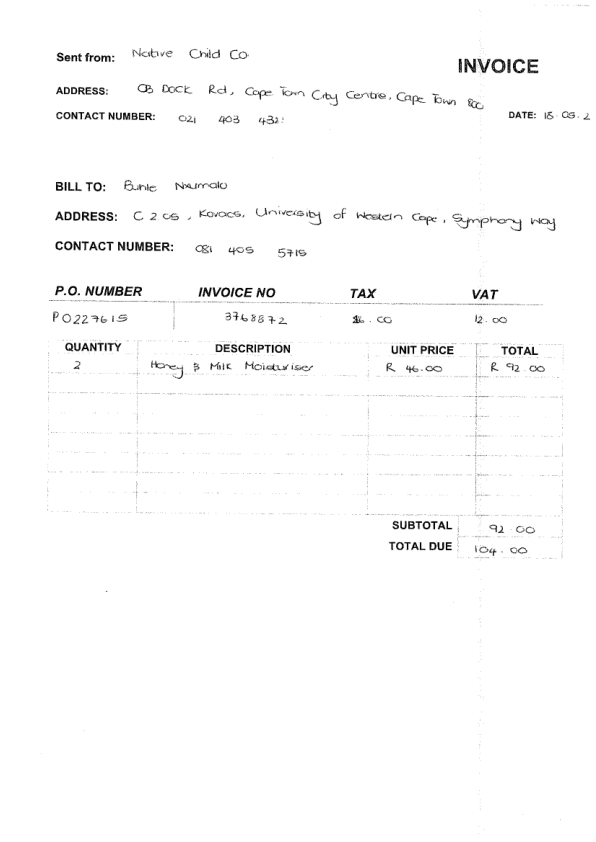 Sent from: Native Child Co.
INVOICE
ADDRESS: OB Dock Rd, Cape Town City Centre, Cape Town
CONTACT NUMBER: 021 403 432
DATE: 18.05.2
BILL TO: Buhle Nxumalo
ADDRESS: C205, Kovacs, University of Western Cape, Symphony Way
CONTACT NUMBER: 081 405 5715
P.O. NUMBER INVOICE NO TAX VAT
PO227615 3768872 12.00
QUANTITY DESCRIPTION UNIT PRICE TOTAL
2 Honey & Milk Moisturiser R 46.00 R 92.00
SUBTOTAL 92.00
TOTAL DUE 104.00